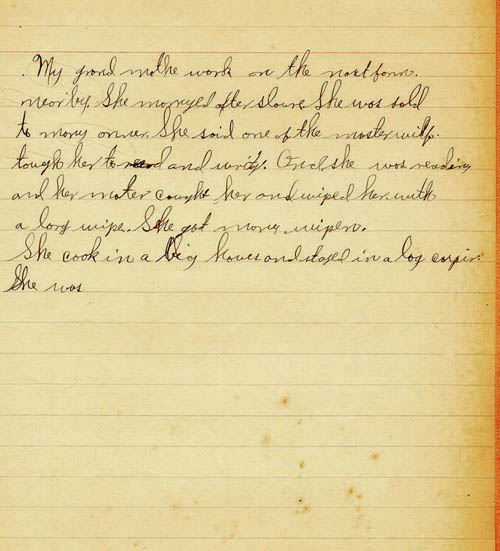 My grand mothe work on the next farm.
nearby. She marryed after slave She was sold
to many owner. She said one of the master wife.
tough her to read and write. Once she was reading
and her mater caught her and wiped her with
a long wipe. She got many wipen.
She cook in a big houes and stayed in a log
She was